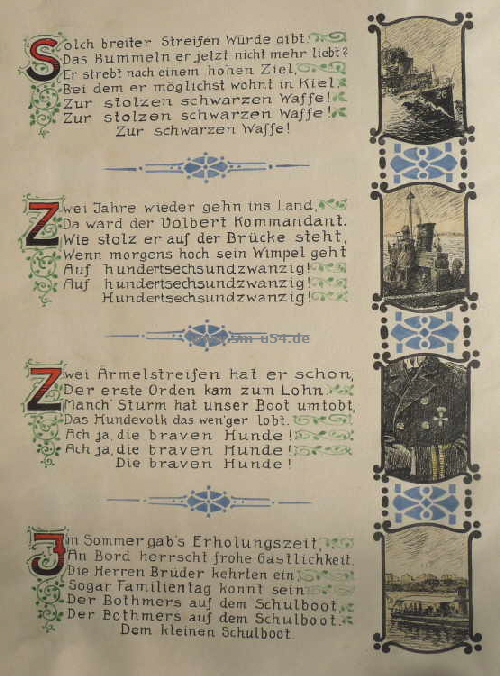 Solch breiter Streifen Würde gibt.
Das Bummeln er jetzt nicht mehr liebt?
Er strebt nach einem hohen Ziel,
Bei dem er möglichst wohnt in Kiel
Zur stolzen schwarzen Waffe!
Zur stolzen schwarzen Waffe!
Zur schwarzen Waffe!
Zwei Jahre wieder gehn ins Land,
Da ward der Volbert Kommandant.
Wie stolz er auf der Brücke steht,
Wenn morgens hoch sein Wimpel geht
Auf hundertsechsundzwanzig!
Auf hundertsechsundzwanzig!
Hundertsechsundzwanzig!
sm-u54.de
Zwei Ärmelstreifen hat er schon,
Der erste Orden kam zum Lohn.
Manch' Sturm hat unser Boot umtobt,
Das Hundevolk das wen'ger lobt.
Ach ja, die braven Hunde!
Ach ja, die braven Hunde!
Die braven Hunde!
Im Sommer gab's Erholungszeit,
An Bord herrscht frohe Gastlichkeit.
Die Herren Brüder kehrten ein,
Sogar Familientag konnt sein
Der Bothmers auf dem Schulboot,
Der Bothmers auf dem Schulboot.
Dem kleinen Schulboot